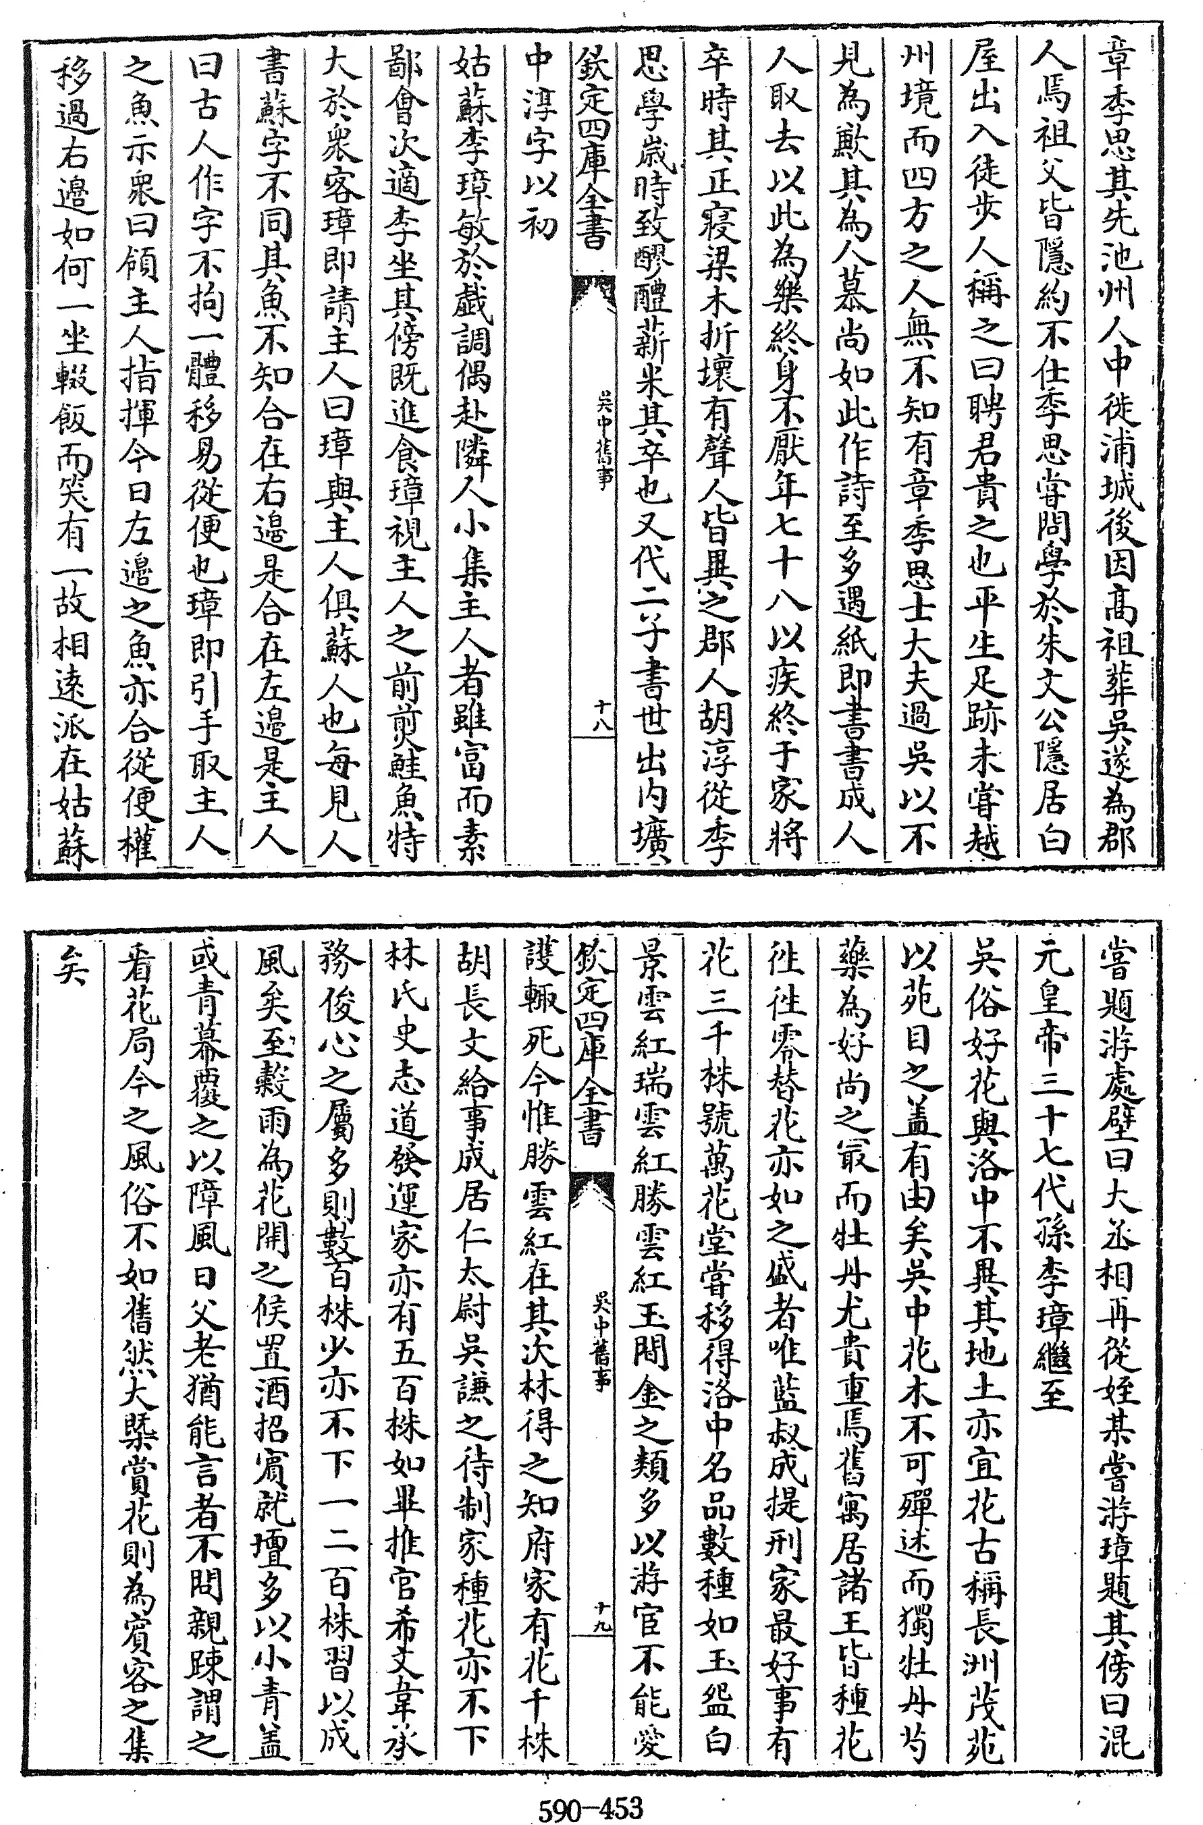 章季思其先池州人中徙浦城後因高祖葬吳遂為郡
人焉祖父皆隱約不仕季思嘗問學於朱文公隱居白
屋出入徒步人稱之曰聘君貴之也平生足跡未嘗越
州境而四方之人無不知有章季思士大夫過吳以不
見為歉其為人慕尚如此作詩至多遇紙即書書成人
人取去以此為樂終身不厭年七十八以疾終于家將
卒時其正寢梁木折壞有聲人皆異之郡人胡淳從季
思學歲時致醪醴薪米其卒也又代二子書世出內壙
欽定四庫全書
吳中舊事
十八
中淳字以初
姑蘇李璋敏於戲調偶赴隣人小集主人者雖富而素
鄙會次適李坐其傍既進食璋視主人之前煎鮭魚特
大於衆客璋即請主人曰璋與主人俱蘇人也每見人
書蘇字不同其魚不知合在右邉是合在左邉是主人
曰古人作字不拘一體移易從便也璋即引手取主人
之魚示衆曰領主人指揮今日左邉之魚亦合從便權
移過右邉如何一坐輟飯而笑有一故相遠派在姑蘇
嘗題游處壁曰大丞相再從姪某嘗游璋題其傍曰混
元皇帝三十七代孫李璋繼至
吳俗好花與洛中不異其地土亦宜花古稱長洲茂苑
以苑目之盖有由矣吳中花木不可殫述而獨牡丹芍
藥為好尚之最而牡丹尤貴重焉舊寓居諸王皆種花
徃徃零替花亦如之盛者唯藍叔成提刑家最好事有
花三千株號萬花堂嘗移得洛中名品數種如玉盌白
景雲紅瑞雲紅勝雲紅玉間金之類多以游宦不能愛
欽定四庫全書
吳中舊事
十九
護輙死今惟勝雲紅在其次林得之知府家有花千株
胡長文給事成居仁太尉吳謙之待制家種花亦不下
林氏史志道發運家亦有五百株如畢推官希文韋承
務俊心之屬多則數百株少亦不下一二百株習以成
風矣至穀雨為花開之候置酒招賓就壇多以小青盖
或青幕覆之以障風日父老猶能言者不問親踈謂之
看花局今之風俗不如舊然大槩賞花則為賓客之集
矣
590-453